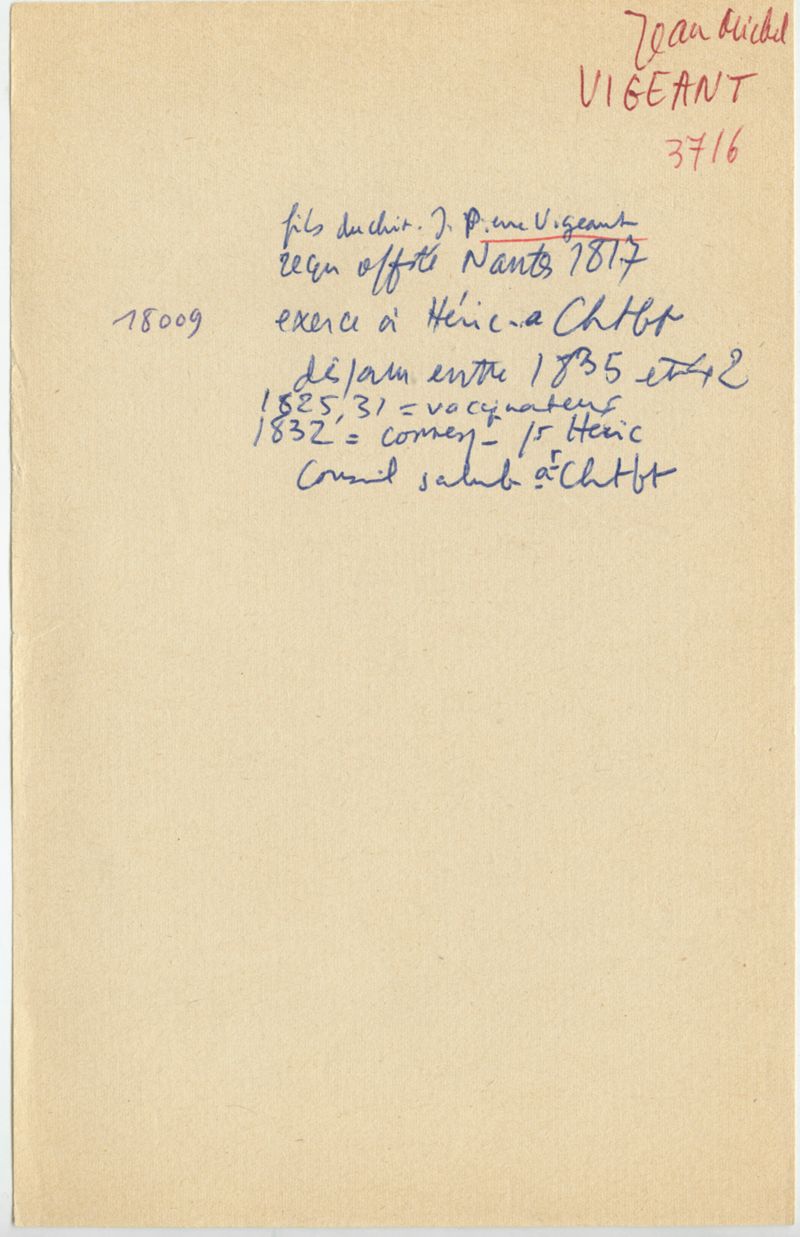 Jean Michel
VIGEANT
3716
fils du chir. J. Pierre Vigeant
reçu offsté Nantes 1817
18009 exerce à Héric - a Chtbt
disparu entre 1835 et 42
1825, 31 = vaccinateur
1832 = corresp - pr Héric
Conseil salub à Chtbt